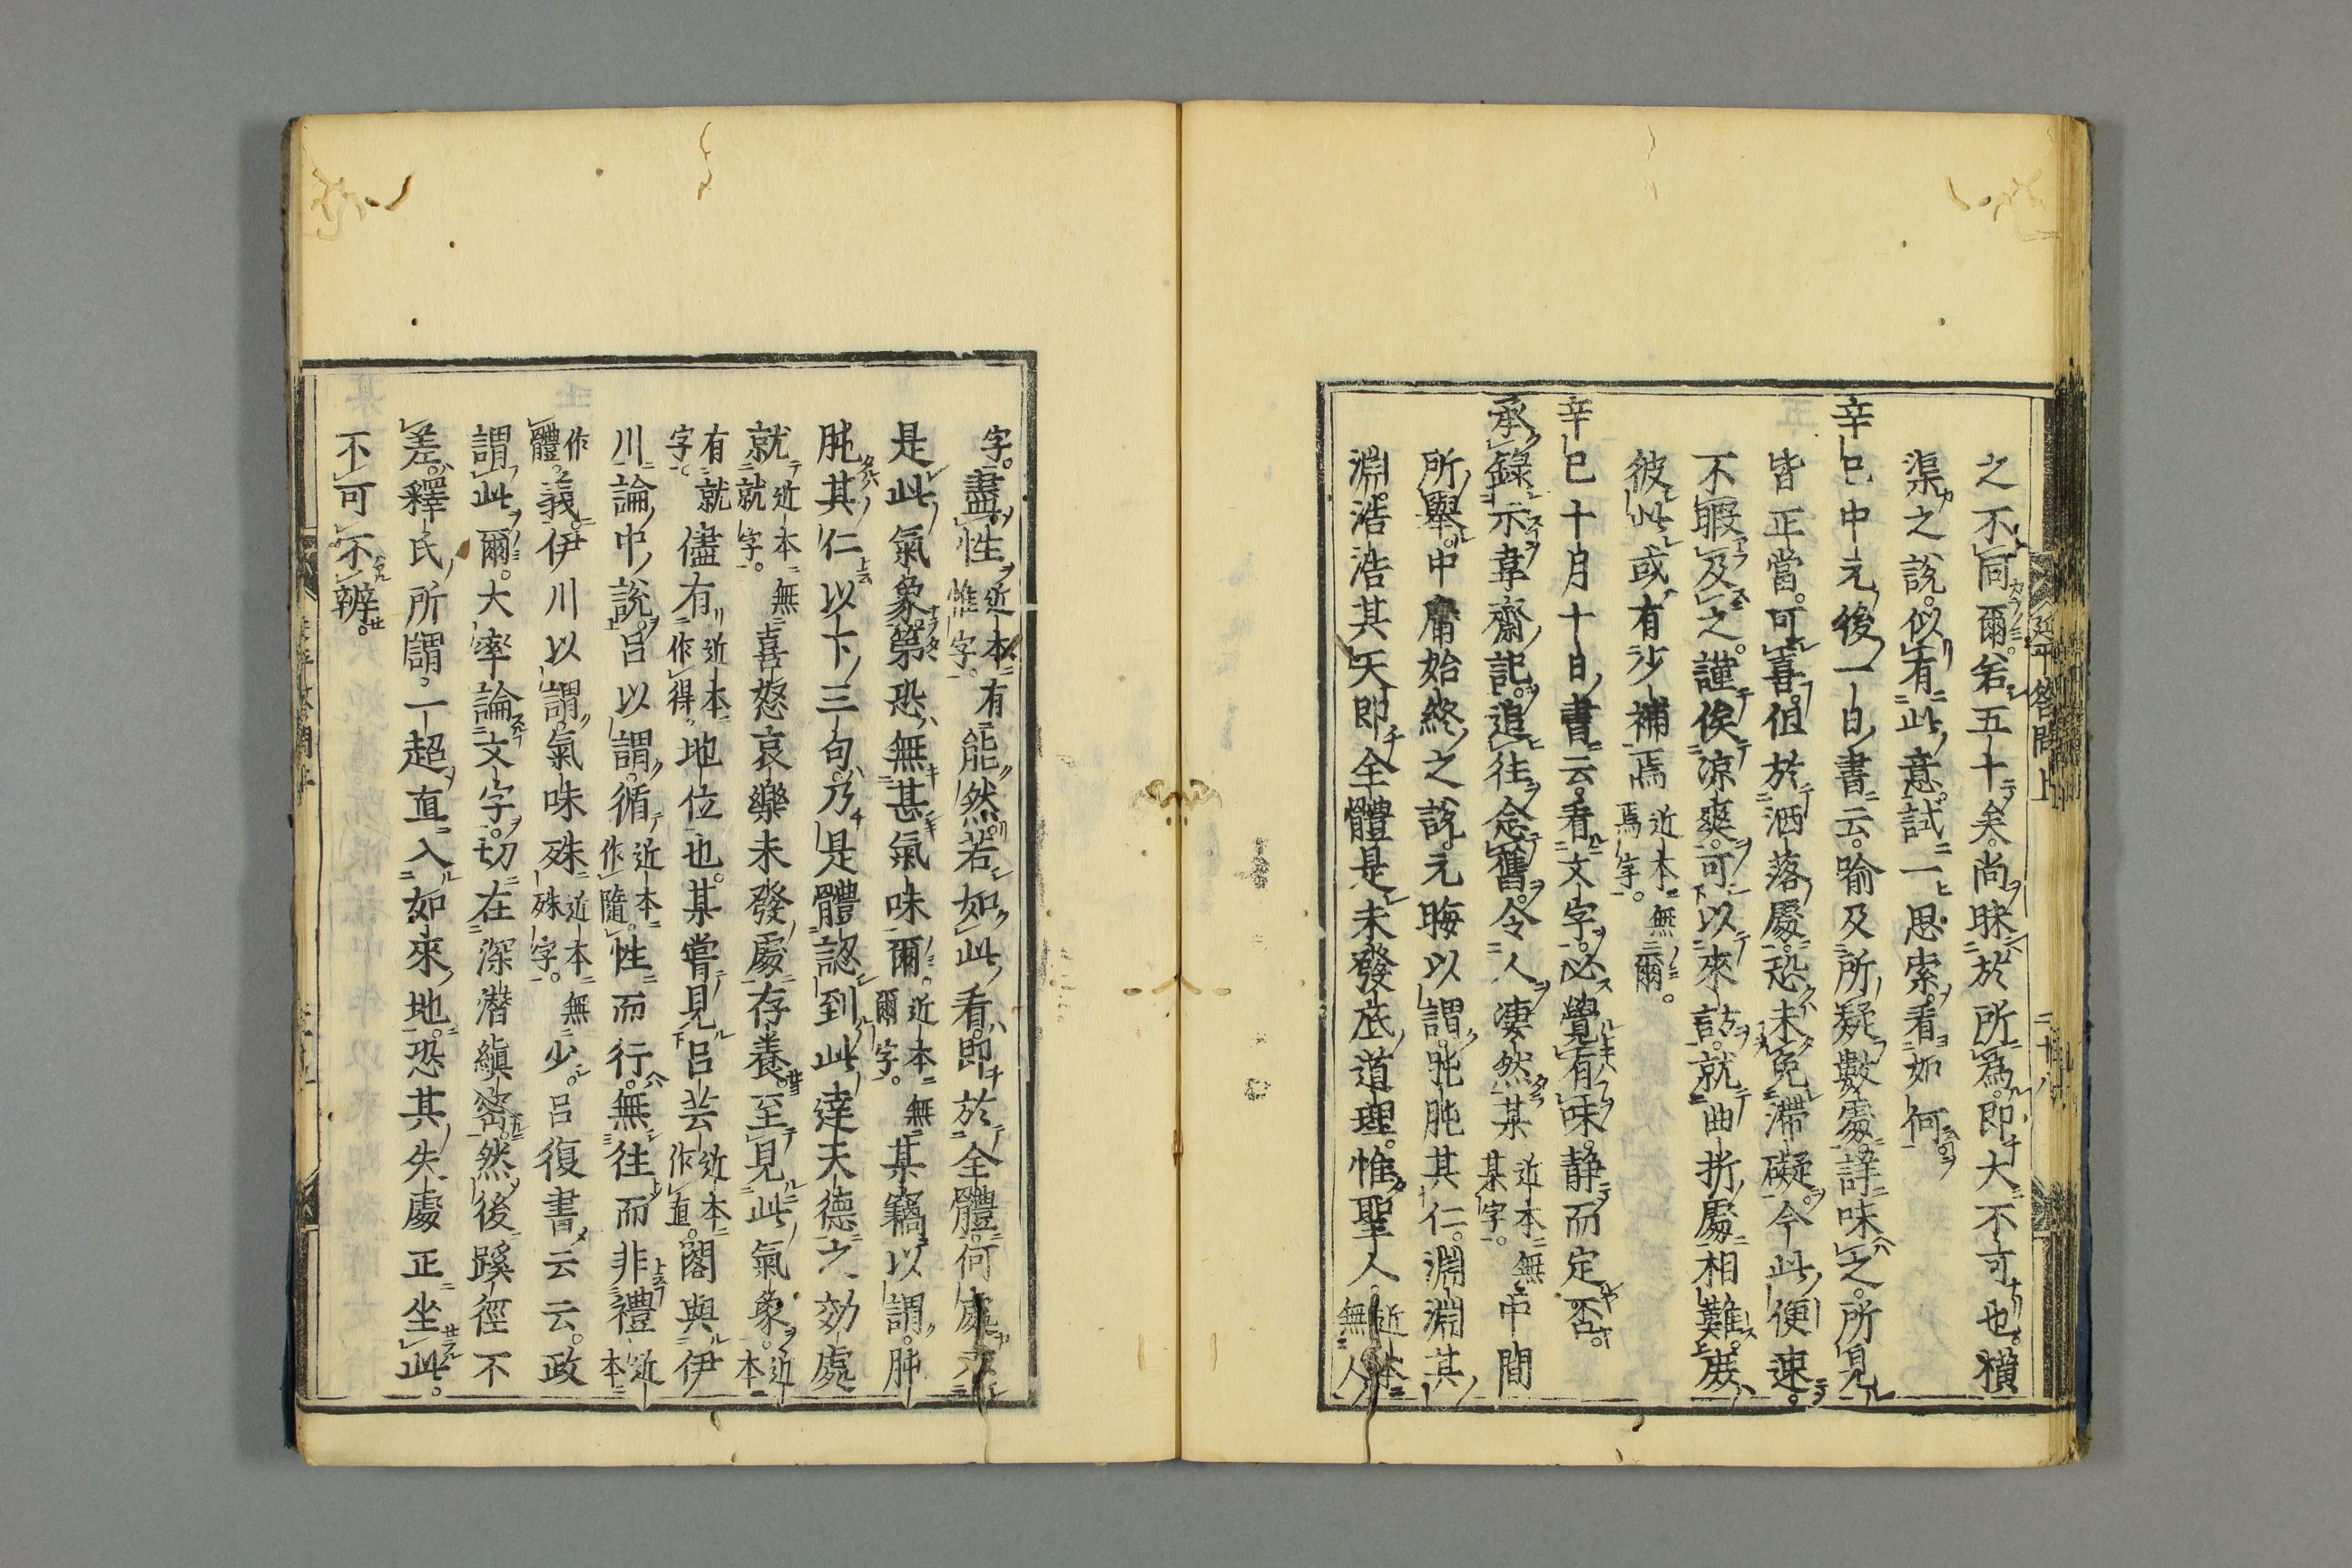 之不同爾若五十矣尚昧於所爲即大不可也橫
渠之說似有此意試一思索看如何
辛巳中元後一日書云喻及所疑數處詳味之所見
皆正當可喜但於洒落處恐未免滯礙今此便速
不暇及之謹俟凉爽可以來訪就曲折處相難庶
彼此或有少補焉近本無焉字爾
辛巳十月十日書云看文字必覺有味靜而定否
承錄示韋齋記追往念舊令人凄然某近本無某字中間
所舉中庸始終之說元晦以謂肫肫其仁淵淵其
淵浩浩其天即全體是未發底道理惟聖人近本無人
字盡性近本惟字有能然若如此看即於全體何處
是此氣象第恐無甚氣味爾近本無爾字某竊以謂肫
肫其仁以下三句乃是體認到此達天德之効處
就近本無就字喜怒哀樂未發處存養至見此氣象近本
有就字儘有近本作得地位也某嘗見呂芸近本作直閣與伊
川論中說呂以謂循近本作隨性而行無往而非禮近本
作體義伊川以謂氣味殊近本無殊字少呂復書云云政
謂此爾大率論文字切在深潛縝密然後蹊徑不
差釋氏所謂一超直入如來地恐其失處正坐此
不可不辨
延平答問上
二十八